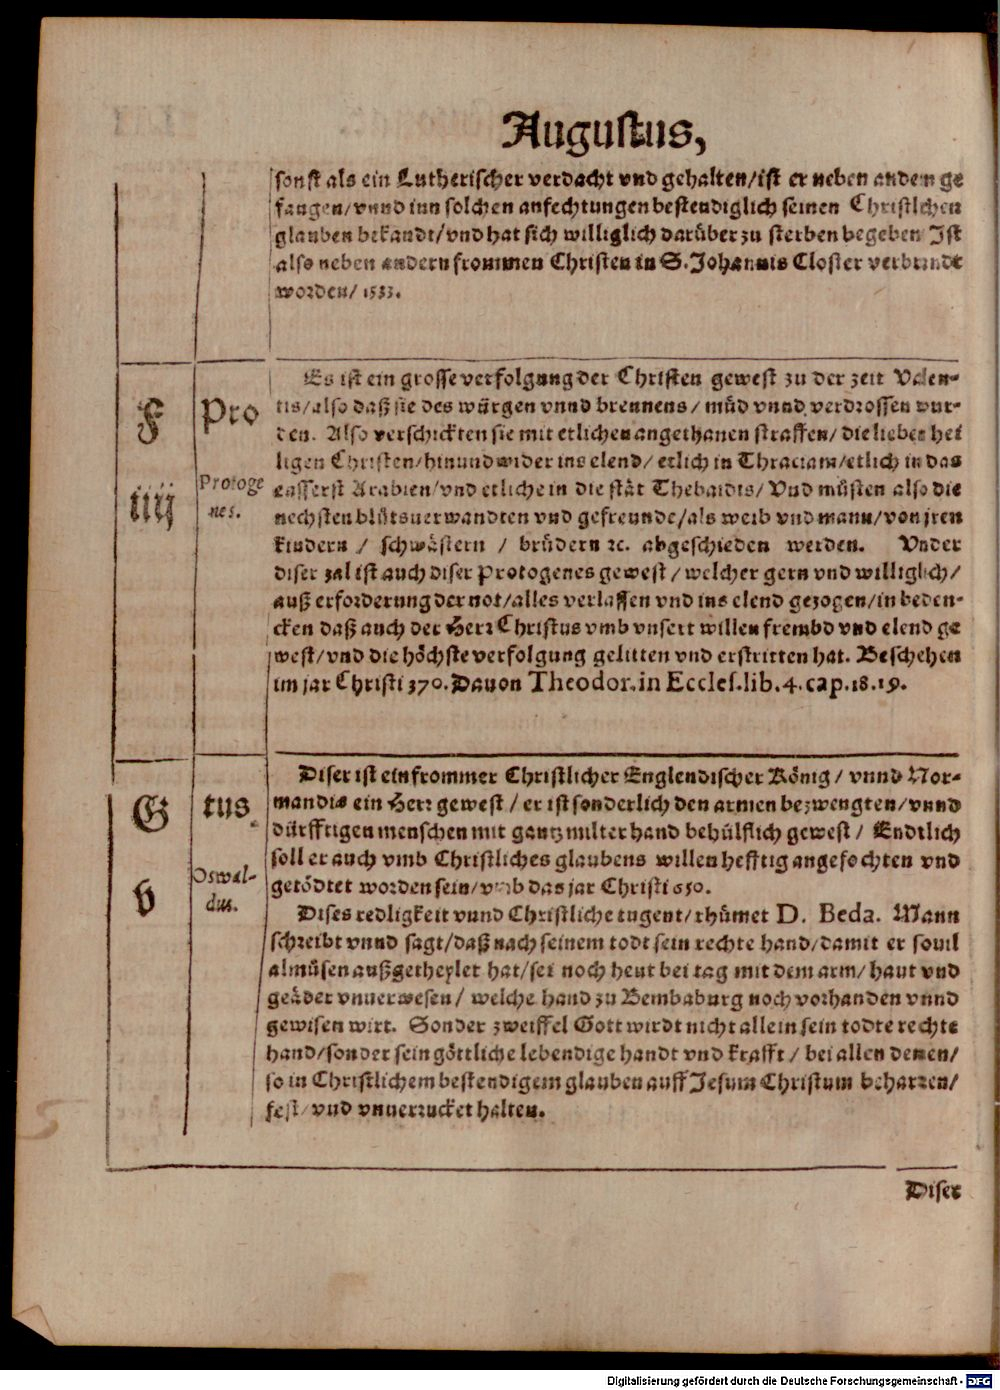 Augustus,
sonst als ein Lutherischer verdacht vnd gehalten/ist er neben andern ge
fangen/vnnd inn solchen anfechtungen bestendiglich seinen Christlchen
glauben bekandt/vnd hat sich williglich darüber zu sterben begeben Ist
also neben andern frommen Christen in S. Johannis Closter verbrendt
worden/ 1533.
F
Pro
iiij
Protoge
nes.
Es ist ein grosse verfolgung der Christen gewest zu der zeit Valen-
tis/also daß sie des würgen vnnd brennens/ müd vnnd verdrossen wur-
den. Also verschickten sie mit etlichen angethanen straffen/ die lieben hei
ligen Christen/hin und wider ins elend/ etlich in Thraciam/etlich in das
eusserst Arabien/vnd etliche in die stät Thebaidis/ Vnd müsten also die
nechsten blütsuerwandten vnd gefreunde/als weib vnd mann/von jren
kindern / schwästern / brüdern ꝛc. abgeschieden werden. Vnder
diser zal ist auch diser Protogenes gewest/ welcher gern vnd williglich/
auß erforderung der not/alles verlassen vnd ins elend gezogen/in beden-
cken daß auch der Herr Christus vmb vnsert willen frembd vnd elend ge
west/vnd die höchste verfolgung gelitten vnd erstritten hat. Beschehen
im jar Christi 370. Dauon Theodor. in Eccles. lib. 4. cap. 18. 19.
G
tus
v
Oswal-
dus.
Diser ist ein frommer Christlicher Englendischer König/ vnnd Nor-
mandie ein Herr gewest/ er ist sonderlich den armen bezwengten/vnnd
dürfftigen menschen mit gantz milter hand behülflich gewest/ Endtlich
soll er auch vmb Christliches glaubens willen hefftig angefochten vnd
getödtet worden sein/vmb das jar Christi 650.
Dises redligkeit vnnd Christliche tugent/rhümet D. Beda. Mann
schreibt vnnd sagt/daß nach seinem todt sein rechte hand/damit er souil
almüsen außgetheylet hat/sei noch heut bei tag mit dem arm/haut vnd
geäder vnuerwesen/ welche hand zu Bembaburg noch vorhanden vnnd
gewisen wirt. Sonder zweiffel Gott wirdt nicht allein sein todte rechte
hand/sonder sein göttliche lebendige handt vnd krafft/ bei allen denen/
so in Christlichem bestendigem glauben auff Jesum Christum beharren/
fest/vnd vnuerrucket halten.
Diser
Digitalisierung gefördert durch die Deutsche Forschungsgemeinschaft - DFG